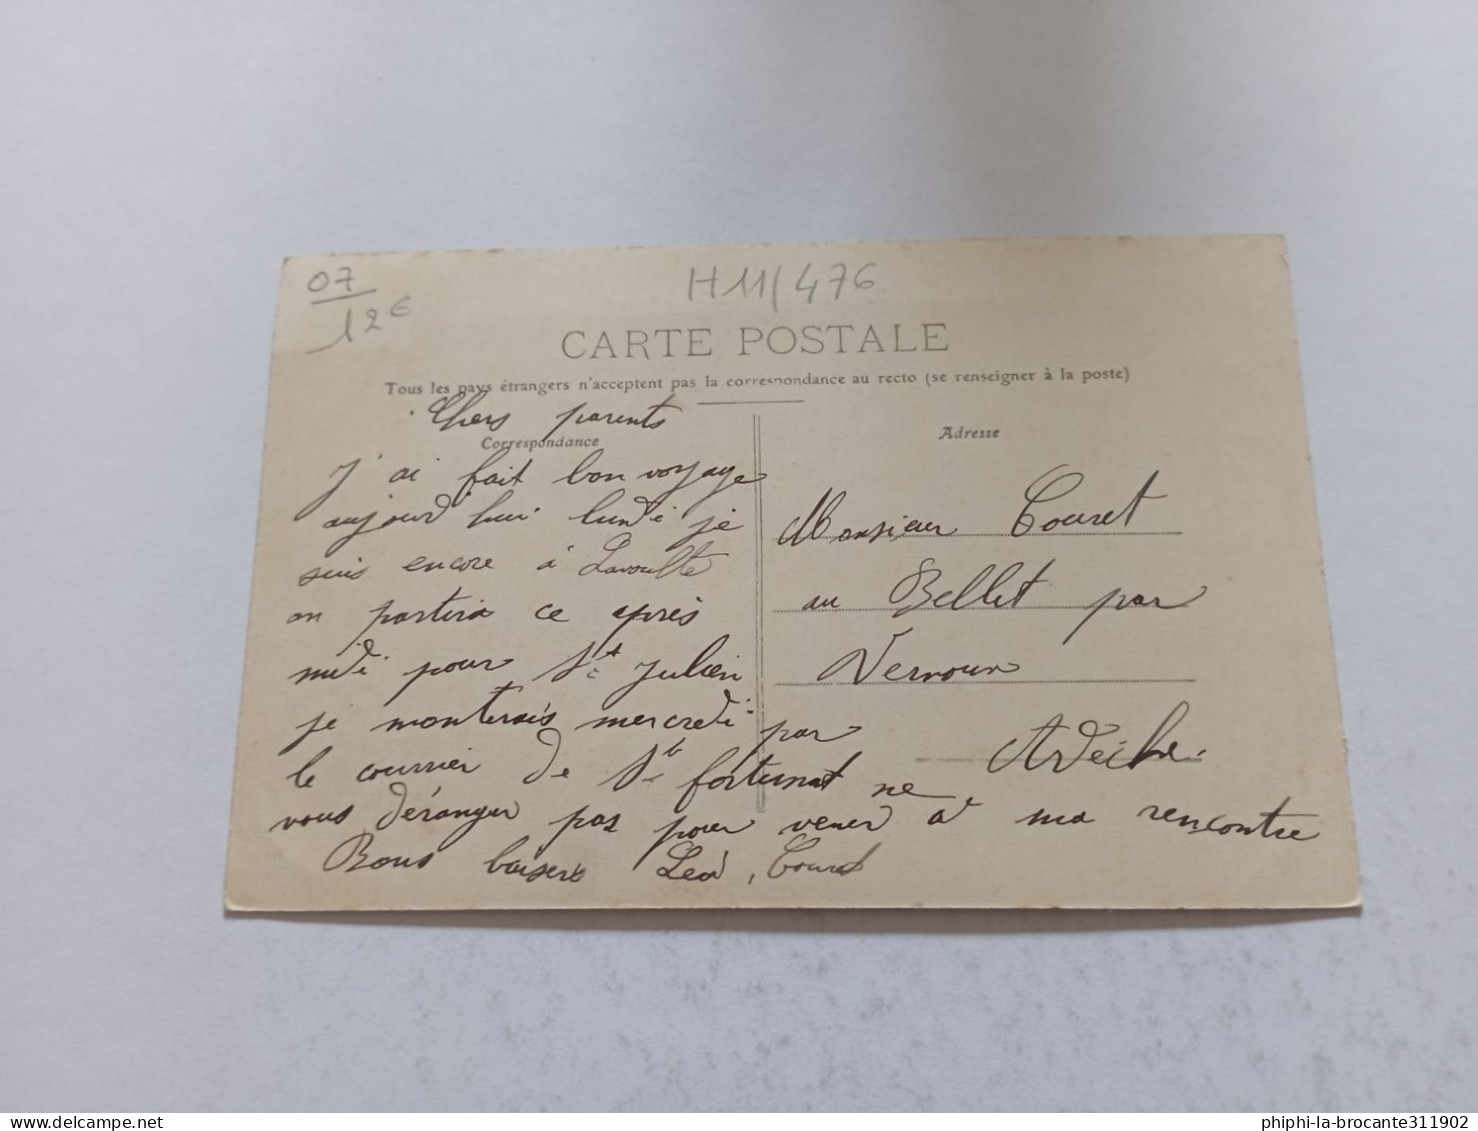 07
12€
H11/476
CARTE POSTALE
Tous les pays étrangers n'acceptent pas la correspondance au recto (se renseigner à la poste)
Correspondance
Chers parents
J'ai fait bon voyage
aujourd'hui lundi je
suis encore à Lavoulte
on partira ce après
midi pour St Julien
je monterais mercredi par
le courrier de St fortunat ne
vous déranger pas pour venir à ma rencontre
Bons baisers Léa, Couret
Adresse
Monsieur Couret
au Bellet par
Vernoux
Ardèche.
delcampe.net
phiphi-la-brocante311902